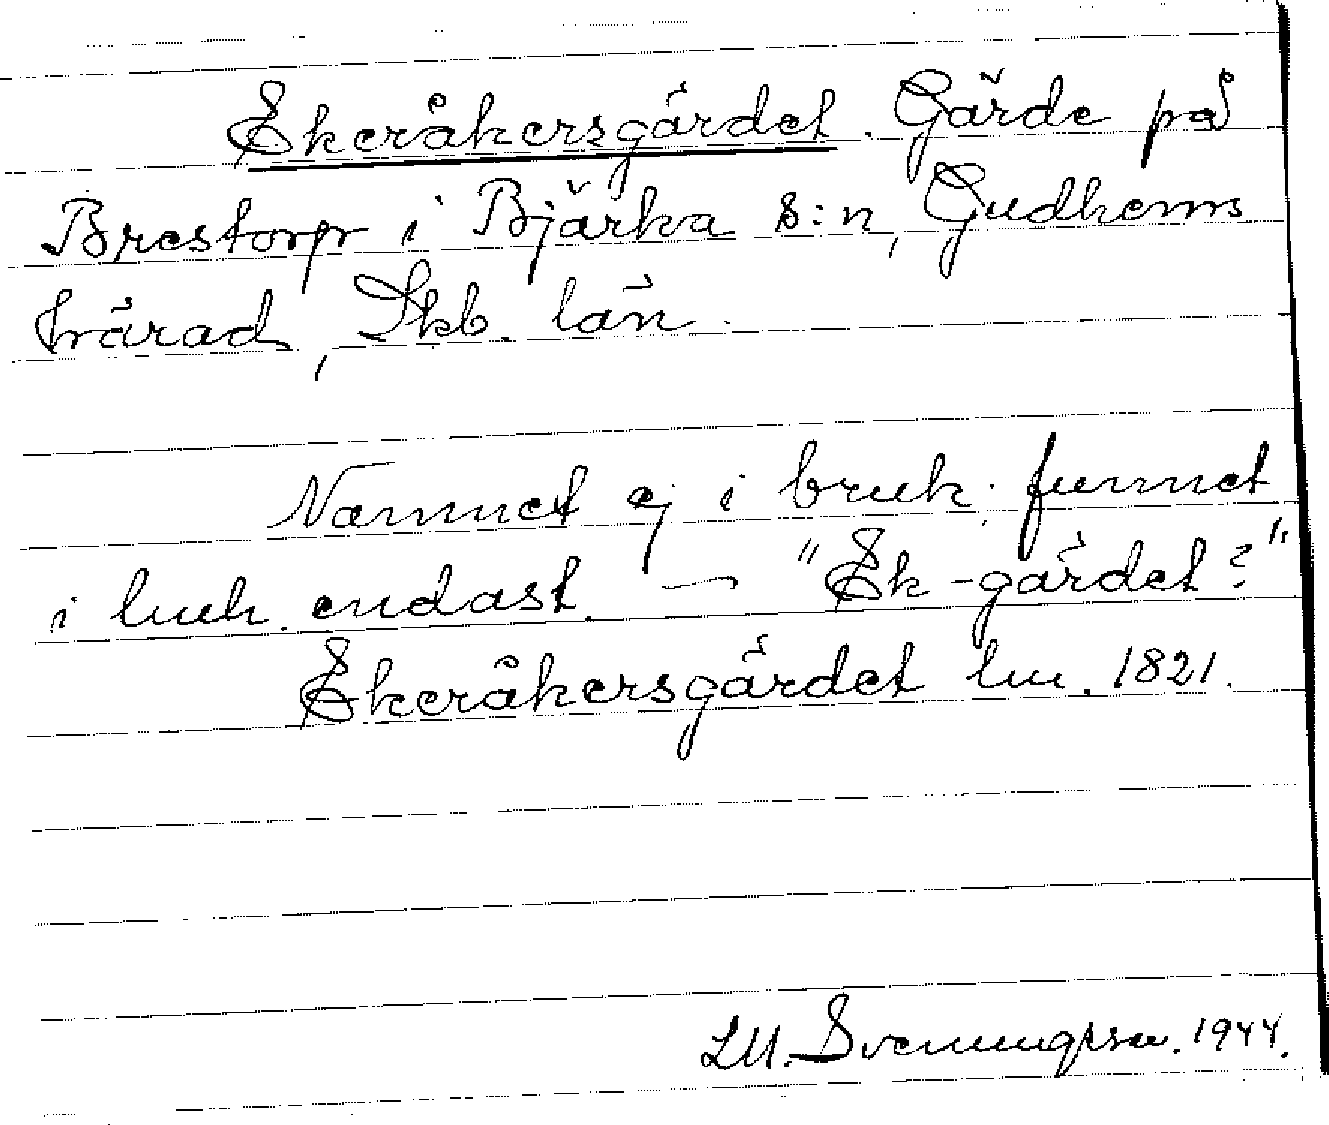 Ekeråkersgärdet. Gärde på
Brestorp i Bjärka s:n, Gudhems
härad, Skb. län.
Namnet ej i bruk; funnet
i luh. endast. — "Ek-gärdet?"
Ekeråkersgärdet lm. 1821.
LM. Svenungsson. 1944.